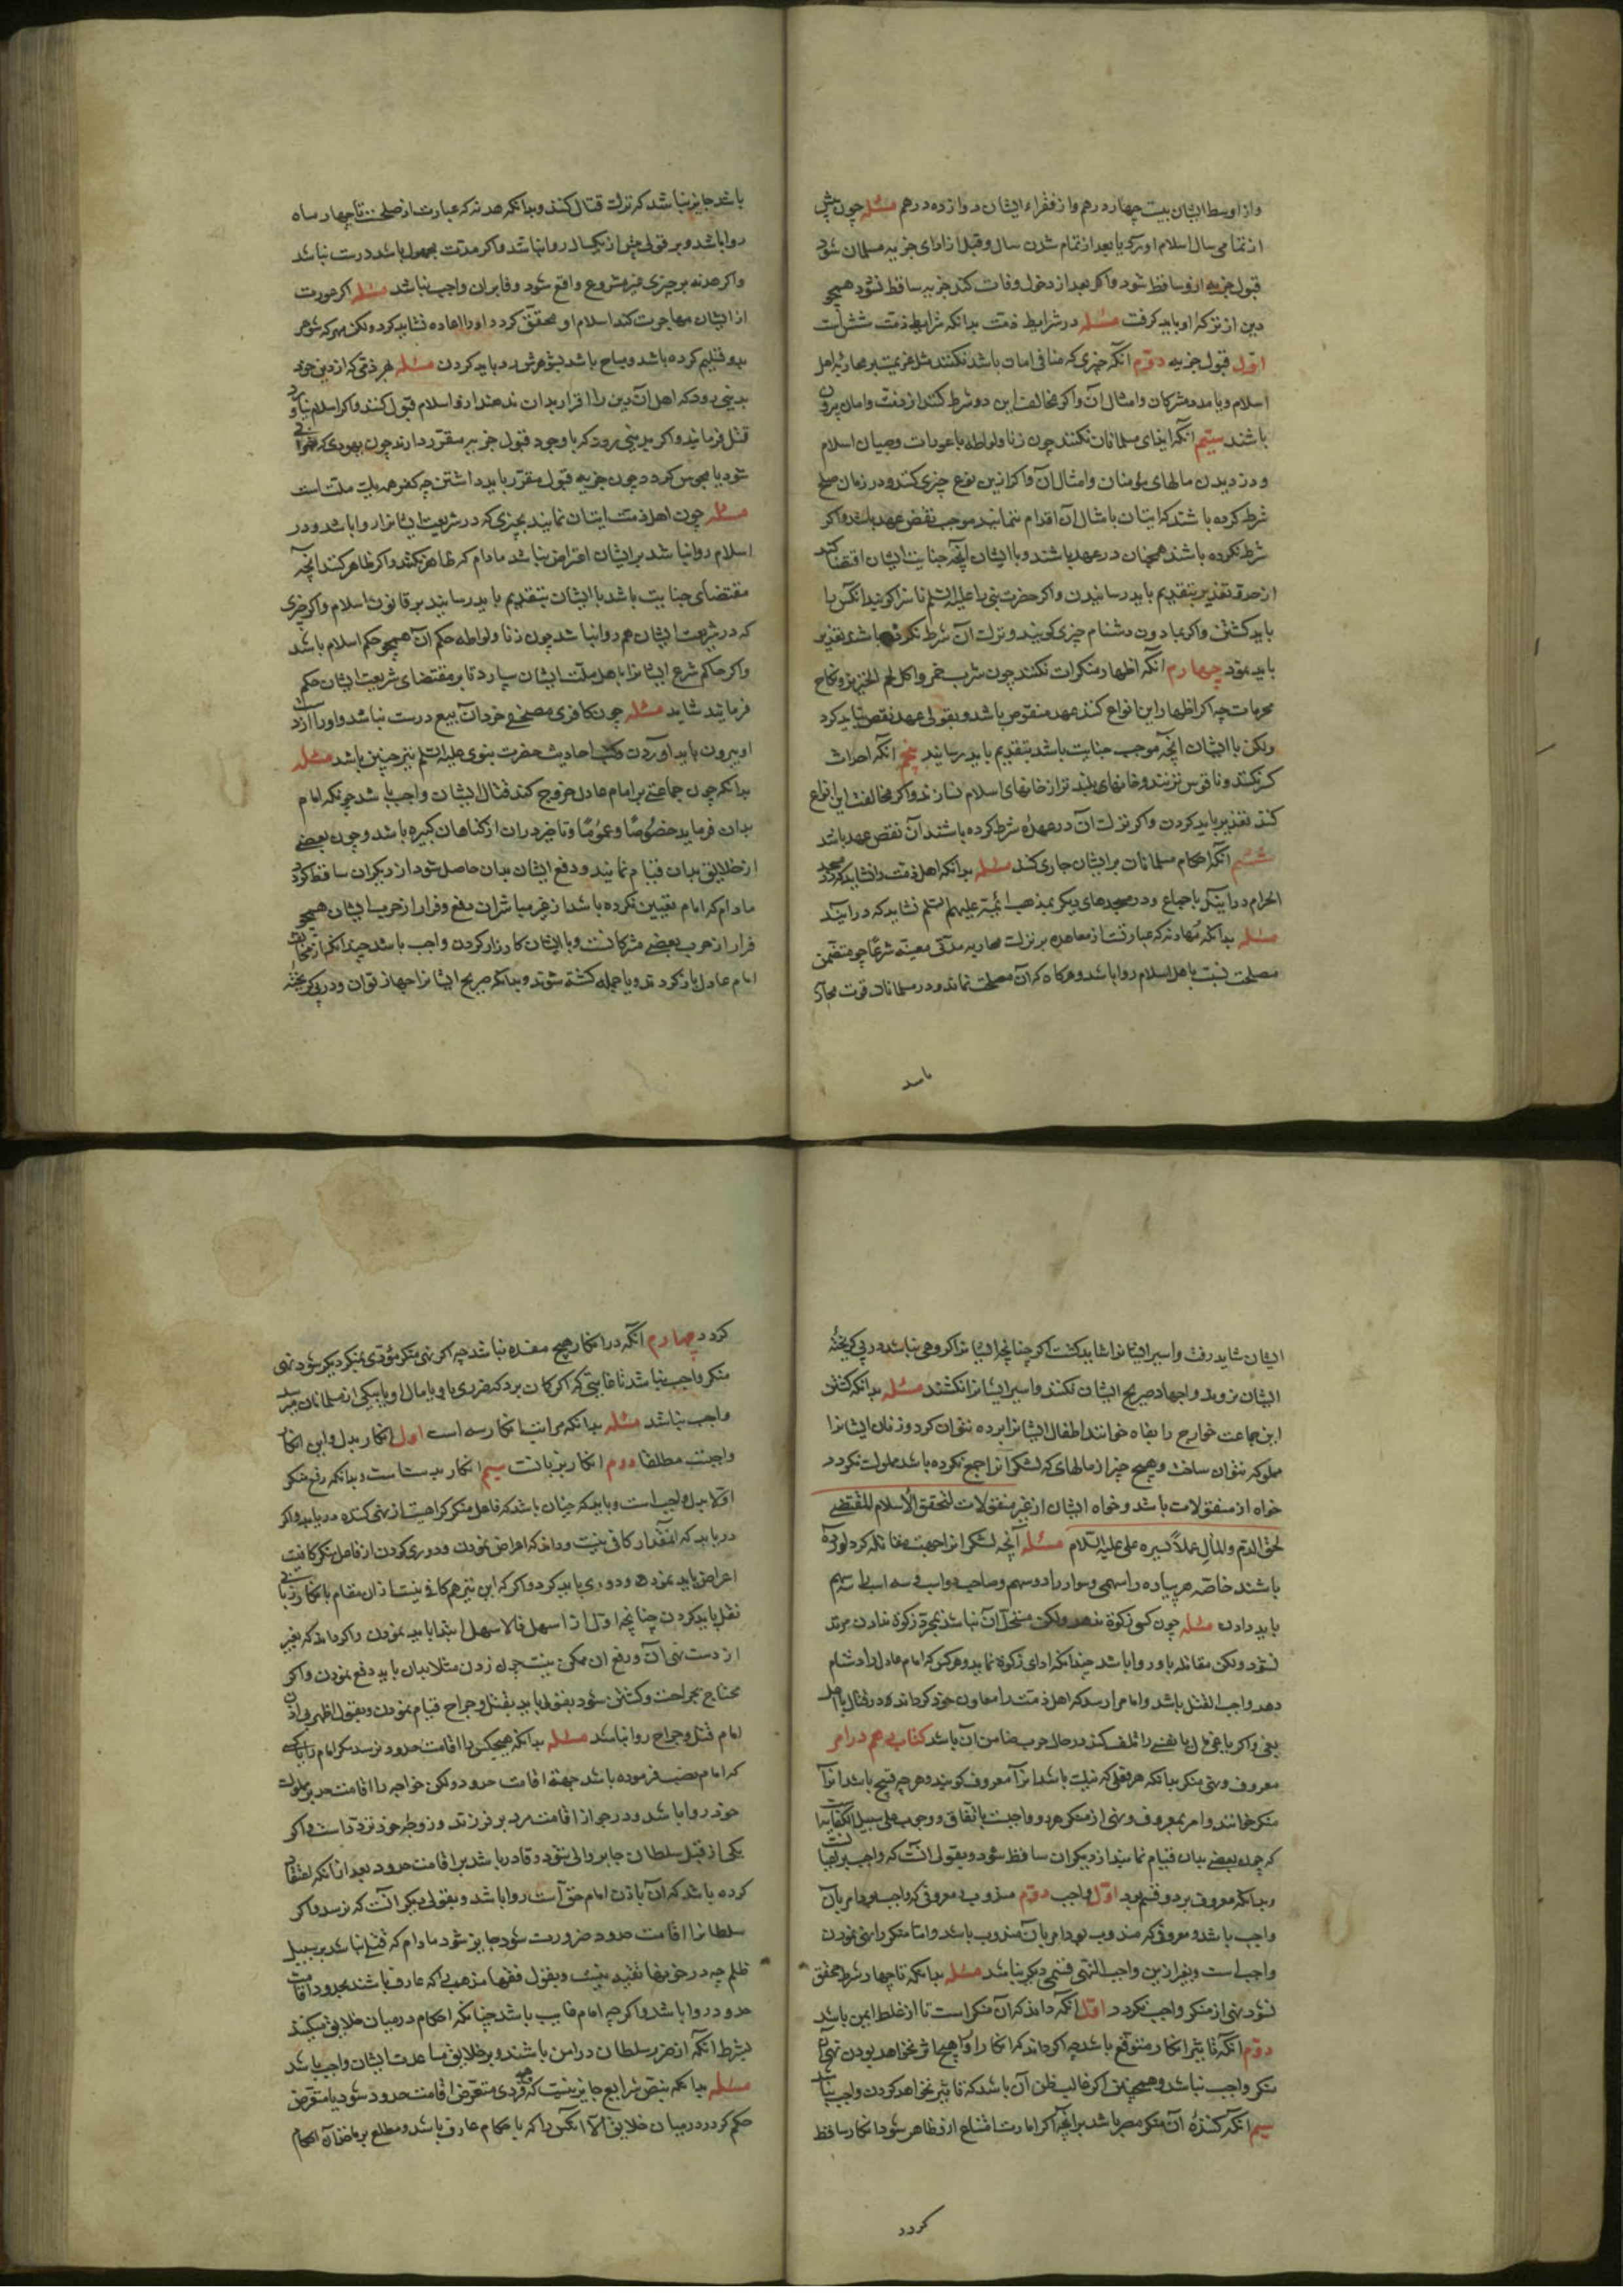 واز اوسط ایشان بیست چهار درهم واز فقراء ایشان دوازده درهم مسئله چون پیش
از تمامی سال اسلام اورد یا بعد از تمام شدن سال وقبل از ادای جزیه مسلمان شود
قبول جزیه ازو ساقط شود واکر بعد از دخول وفات کند جزیه ساقط نشود همچو
دین از ترکهٔ او باید کرفت مسئله در شرایط ذمت بدانکه شرایط ذمت شش است
اول قبول جزیه دوم انکه چیزی که منافی امان باشد نکنند مثل عزیمت بر محاربهٔ اهل
اسلام ویا مدد مشرکان وامثال آن واکر مخالف این دو شرط کنند از ذمت وامان بیرون
باشند سیم انکه ایذای مسلمانان نکنند چون زنا ولواطه با عورات وصبیان اسلام
ودزدیدن مالهای مؤمنان وامثال آن واکر ازین نوع چیزی کنند ودر زمان صلح
شرط کرده باشند که ایشان بامثال آن اقدام ننمایند موجب نقض عهد باشد واکر
شرط نکرده باشند همچنان در عهد باشند وبا ایشان آنچه جنایت ایشان اقتضا کند
از حد وتعذیر بتقدیم باید رسانیدن واکر حضرت نبی را علیه السلم ناسزا کویند انکس را
باید کشتن واکر بمادون دشنام چیزی کویند وترک آن شرط نکرده باشند تعذیر
باید نمود چهارم انکه اظهار منکرات نکنند چون شرب خمر واکل لحم الخنزیر ونکاح
محرمات چه اکر اظهار این انواع کنند عهد منقوض باشد وبقولی عهد نقض نباید کرد
ولکن با ایشان آنچه موجب جنایت باشد بتقدیم باید رسانید پنجم انکه احداث
کنند وناقوس نزنند وخانهای بلند تر از خانهای اسلام نسازند واکر مخالفت این انواع
کنند تعذیر باید کردن واکر ترک آن در عهده شرط کرده باشند آن نقض عهد باشد
ششم انکه احکام مسلمانان بر ایشان جاری کنند مسئله بدانکه اهل ذمت را نشاید که در مسجد
الحرام درایند باجماع ودر مسجدهای دیکر بمذهب ائمه علیهم السلم نشاید که درایند
مسئله بدانکه مهادنه که عبارتست از معاهده بر ترک محاربه مدتی معینه شرعا چو متضمن
مصلحت نسبت باهل اسلام روا باشد وهرکاه که آن مصلحت نماند ودر مسلمانان قوت
باشد
باشد جایز نباشد که ترک قتال کنند وبدانکه هدنه که عبارت از صلحست تا چهار ماه
روا باشد وبر قولی پیش از یکسال روا نباشد واکر مدت مجهول باشد درست نباشد
واکر هدنه بر چیزی غیر مشروع واقع شود وفا بران واجب نباشد مسئله اکر عورت
از ایشان مهاجرت کند اسلام او محقق کردد او را اعاده نشاید کرد ولکن مهر که شوهر
بدو تسلیم کرده باشد ومباح باشد بشوهرش رد باید کردن مسئله هر ذمی که از دین خود
بدینی رود که اهل آن دین را اقرار بدان ندهند ازو اسلام قبول کنند واکر اسلام نیاورد
قتل فرمایند واکر بدینی رود که با وجود قبول جزیه مقرر دارند چون یهودی که نصرانی
شود یا مجوس کردد چون جزیه قبول مقرر باید داشتن چه کفر همه یک ملت است
مسئله چون اهل ذمت اتیان نمایند بچیزی که در شریعت ایشانرا روا باشد ودر
اسلام روا نباشد بر ایشان اعتراض نباشد مادام که ظاهر نکنند واکر ظاهر کنند انچه
مقتضای جنایت باشد با ایشان بتقدیم باید رسانید بر قانون اسلام واکر چیزی
که در شریعت ایشان هم روا نباشد چون زنا ولواطه حکم آن همچو حکم اسلام باشد
واکر حاکم شرع ایشانرا باهل ملت ایشان سپارد تا بر مقتضای شریعت ایشان حکم
فرمایند شاید مسئله چون کافری مصحفی خرد آن بیع درست نباشد واو را از دست
او بیرون باید اوردن وکتب احادیث حضرت نبوی علیه السلم نیز چنین باشد مسئله
بدانکه چون جماعتی بر امام عادل خروج کنند قتال ایشان واجب باشد چونکه امام
بدان فرماید خصوصا وعموما وتاخیر دران از کناهان کبیره باشد وچون بعضی
از خلایق بدان قیام نمایند ودفع ایشان بدان حاصل شود از دیکران ساقط کردد
مادام که امام تعیین نکرده باشد از غیر مباشران دفع وفرار از حرب ایشان همچو
فرار از حرب بعضی مشرکانست وبا ایشان کارزار کردن واجب باشد چندانکه
امام عادل باز کردند ویا جمله کشته شوند وبدانکه جریح ایشانرا اجهاز توان ودر پی کریخته
ایشان شاید رفت واسیر ایشانرا شاید کشت اکر چنانچه ایشانرا کروهی نباشد در پی کریختهٔ
ایشان نروند واجهاد جریح ایشان نکنند واسیر ایشانرا نکشند مسئله بدانکه کشتن
این جماعت خوارج را بغاه خوانند اطفال ایشانرا برده نتوان کرد وزنان ایشانرا
مملوکه نتوان ساخت وهیچ چیز از مالهای که لشکر آنرا جمع نکرده باشد مملوک نکردد
خواه از منقولات باشد وخواه ایشان از غیر منقولات لتحقق الاسلام المقتضی
لحقن الدم والمال عملا بسیره علی علیه السلام مسئله آنچه لشکر انرا جهت مقاتله کرد اورده
باشند خاصة هر پیاده را سهمی وسوار را دو سهم وصاحب دو اسب وسه اسب را سه سهم
باید دادن مسئله چون کسی زکوة ندهد ولکن مستحل آن نباشد بمجرد زکوة نادادن مرتد
نشود ولکن مقاتله باو روا باشد چندانکه ادای زکوة نماید وهرکس که امام عادل را دشنام
دهد واجب القتل باشد وامام را رسد که اهل ذمت را معاون خود کرداند در قتال باهل
بغی واکر باغی مال یا نفسی را تلف کند در حال حرب ضامن آن باشد کتاب دهم در امر
معروف ونهی منکر بدانکه هر فعلی که نیک باشد انرا معروف کویند وهرچه قبیح باشد انرا
منکر خوانند وامر بمعروف ونهی از منکر هر دو واجبست باتفاق ووجوب علی سبیل الکفایه است
که چون بعضی بدان قیام نمایند از دیکران ساقط شود وبقولی انست که واجب بر اعیانست
وبدانکه معروف بر دو قسم بود اول واجب دوم مندوب معروفی که واجب بود امر بآن
واجب باشد ومعروفی که مندوب بود امر بآن مندوب باشد واما منکر را نهی نمودن
واجب است وبغیر ازین واجب النهی قسمی دیکر نباشد مسئله بدانکه تا چهار شرط محقق
نشود نهی از منکر واجب نکردد اول انکه داند که آن منکر است تا از غلط ایمن باشد
دوم انکه تاثیر انکار متوقع باشد چه اکر داند که انکار او را هیچ اثر نخواهد بودن نهی آن
منکر واجب نباشد وهمچنین اکر غالب ظن آن باشد که تاثیر نخواهد کردن واجب نباشد
سیم انکه کنندهٔ آن منکر مصر باشد برانچه اکر امارت امتناع ازو ظاهر شود انکار ساقط
کردد
کردد چهارم انکه در انکار هیچ مفسده نباشد چه اکر نهی منکر مؤدی بمنکر دیکر شود نهی
منکر واجب نباشد تا غایتی که اکر کمان برد که ضرری یا بوی یا بمال او یا بیکی از مسلمانان میرسد
واجب نباشد مسئله بدانکه مراتب انکار سه است اول انکار بدل واین انکار
واجبست مطلقا دوم انکار بزبانست سیم انکار بدستست وبدانکه رفع منکر
اولا بدل واجب است وباید که چنان باشد که فاعل منکر کراهیت از نهی کننده دریابد واکر
دریابد که انمقدار کافی نیست وداند که اعراض نمودن ودوری کردن از فاعل منکر کافیست
اعراض باید نمود ودوری باید کرد واکر که این نیز هم کافی نیست ازان مقام بانکار زبانی
نقل باید کردن چنانچه اول از اسهل فالاسهل ابتدا باید نمودن واکر داند که بغیر
از دست نهی آن ورفع ان ممکن نیست چون زدن مثلا بدان باید دفع نمودن واکر
محتاج بجراحت وکشتن شود بقولی باید بقتل وجراح قیام نمودن وبقول اظهر بی اذن
امام قتل وجراح روا نباشد مسئله بدانکه هیچکس را اقامت حدود نرسد مکر امام را یا کسی
که امام نصب فرموده باشد جهة اقامت حدود ولکن خواجه را اقامت حد بر مملوک
خود روا باشد ودر جواز اقامت مرد بر فرزند وزوجهٔ خود تردد است واکر
یکی از قبل سلطان جابر والی شود وقادر باشد بر اقامت حدود بعد ازانکه اعتقاد
کرده باشد که آن باذن امام حق است روا باشد وبقولی دیکر انست که نرسد واکر
سلطانرا اقامت حدود ضرورت شود جایز شود مادام که قتل نباشد بر سبیل
ظلم چه در خونها تقیه نیست وبقول فقها مذهب که عارف باشند بحدود اقامت
حدود روا باشد واکرچه امام غایب باشد چنانکه احکام در میان خلایق میکنند
بشرط انکه از ضرر سلطان در امن باشند وبر خلایق مساعدت ایشان واجب باشد
مسئله بدانکه بنص شرایع جایز نیست که هر فردی متعرض اقامت حدود شود یا متعرض
حکم کردد در میان خلایق الا انکس را که باحکام عارف باشد ومطلع بر ماخذ آن احکام